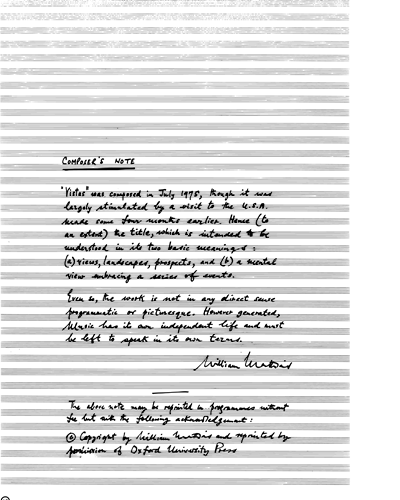 COMPOSER'S NOTE
"Vistas" was composed in July 1975, though it was
largely stimulated by a visit to the U.S.A.
made some four months earlier. Hence (to
an extent) the title, which is intended to be
understood in its two basic meanings:
(a) views, landscapes, prospects, and (b) a mental
view embracing a series of events.
Even so, the work is not in any direct sense
programmatic or picturesque. However generated,
Music has its own independent life and must
be left to speak in its own terms.
William Mathias
The above note may be reprinted in programmes without
fee but with the following acknowledgement:
© Copyright by William Mathias and reprinted by
permission of Oxford University Press